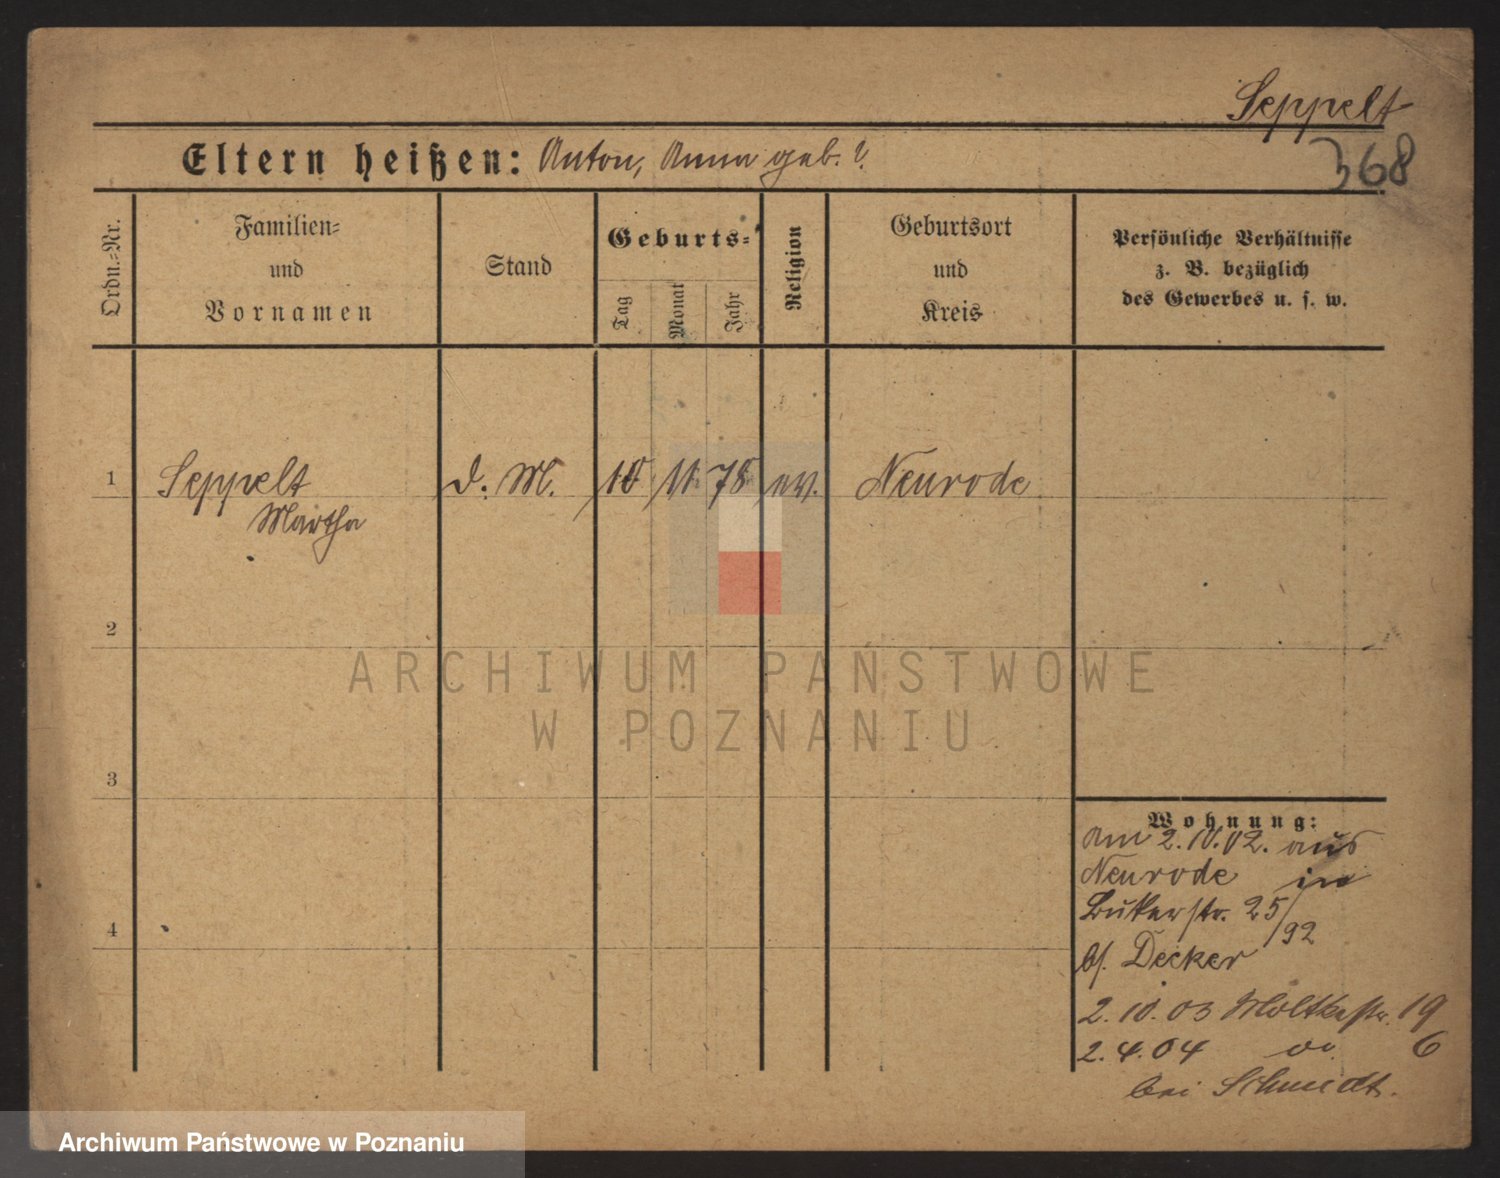 Seppelt
Eltern heißen: Anton, Anna geb. ?
368
Ordn.-Nr.
Familien-
und
Vornamen
Stand
Geburts-
Tag
Monat
Jahr
Religion
Geburtsort
und
Kreis
Persönliche Verhältnisse
z. B. bezüglich
des Gewerbes u. s. w.
1 Seppelt d. M. 10 11. 78 ev. Neurode
Martha
2
3
4
ARCHIWUM PAŃSTWOWE
W POZNANIU
Wohnung:
Am 2.10.02. aus
Neurode in
Bukerstr. 25/92
b/. Decker
2.10.03 Moltkestr. 19
2.4.04 do. 6
bei Schmidt.
Archiwum Państwowe w Poznaniu